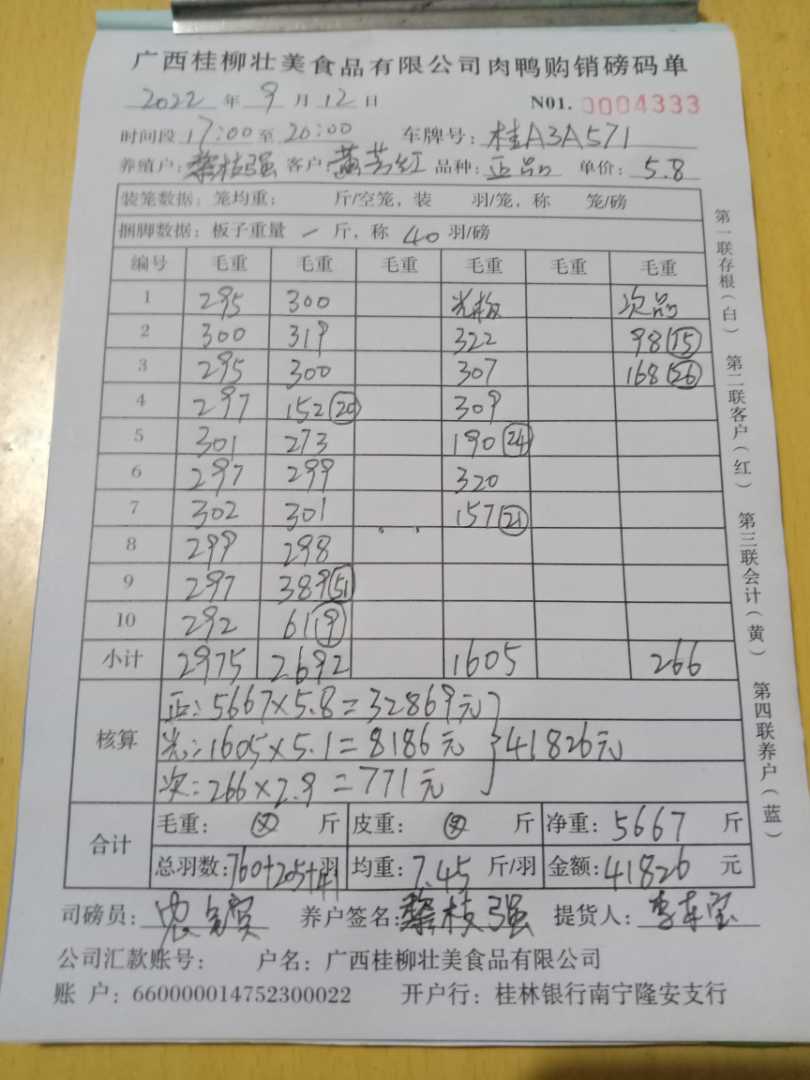 广西桂柳壮美食品有限公司肉鸭购销磅码单
2022 年 9 月 12 日 N01. 0004333
时间段 17:00 至 20:00 车牌号: 桂A3A571
养殖户: 黎枝强 客户: 黄芳红 品种: 正品 单价: 5.8
装笼数据: 笼均重: 斤/空笼, 装 羽/笼, 称 笼/磅
捆脚数据: 板子重量 一 斤, 称 40 羽/磅
编号 毛重 毛重 毛重 毛重 毛重 毛重
1 295 300 光板 次品
2 300 319 322 98(15)
3 295 300 307 168(26)
4 297 152(20) 309
5 301 273 190(24)
6 297 299 320
7 302 301 157(21)
8 299 298
9 297 389(51)
10 292 61(9)
小计 2975 2692 1605 266
核算 正: 5667×5.8=32869元
光: 1605×5.1=8186元 41826元
次: 266×2.9=771元
合计 毛重: 斤 皮重: 斤 净重: 5667 斤
总羽数: 760+205+41 羽 均重: 7.45 斤/羽 金额: 41826 元
司磅员: 养户签名: 黎枝强 提货人: 李东宝
公司汇款账号: 户名: 广西桂柳壮美食品有限公司
账 户: 660000014752300022 开户行: 桂林银行南宁隆安支行
第一联存根(白) 第二联客户(红) 第三联会计(黄) 第四联养户(蓝)